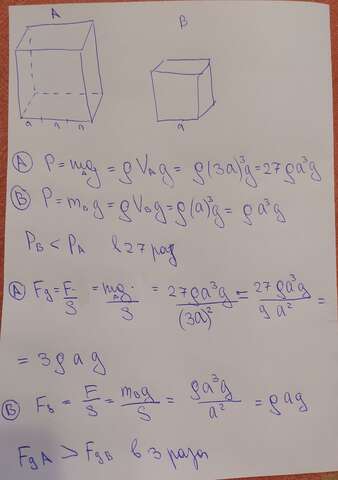 A
B
a a a
a
Ⓐ P = m_A g = ρ V_A g = ρ(3a)³g = 27ρa³g
Ⓑ P = m_B g = ρ V_B g = ρ(a)³g = ρa³g
P_B < P_A в 27 раз
Ⓐ F_g = F/S = m_A g/S = 27ρa³g/(3a)² = 27ρa³g/9a² =
= 3ρag
Ⓑ F_B = F/S = m_B g/S = ρa³g/a² = ρag
F_g A > F_g B в 3 раза